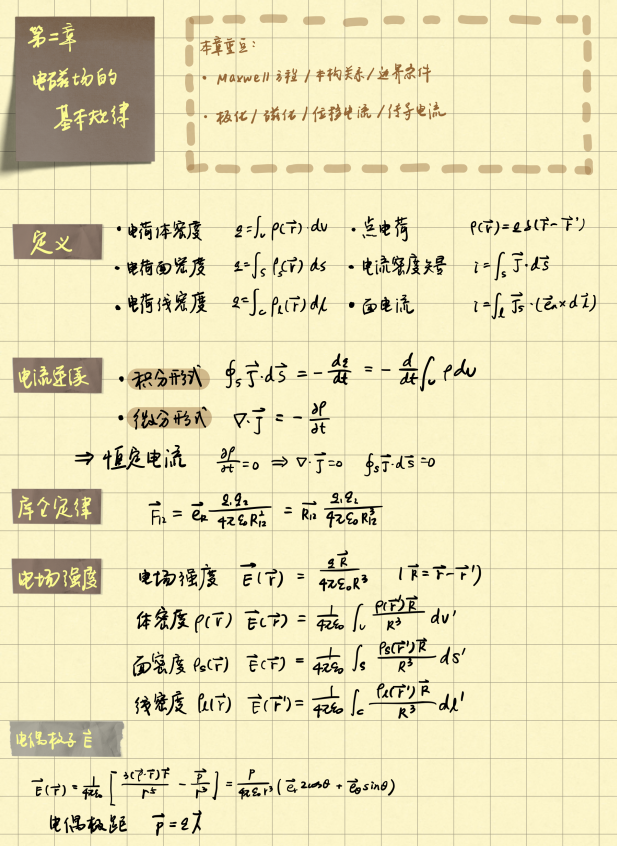 第二章
电磁场的
基本规律
本章重点:
· Maxwell 方程 / 本构关系 / 边界条件
· 极化 / 磁化 / 位移电流 / 传导电流
定义
· 电荷体密度 q=∫_v ρ(r⃗)·dv · 点电荷 ρ(r⃗)=qδ(r⃗-r⃗')
· 电荷面密度 q=∫_S ρ_S(r⃗) ds · 电流密度矢量 i=∫_S J⃗·dS⃗
· 电荷线密度 q=∫_C ρ_l(r⃗) dl · 面电流 i=∫_l J⃗_S·(e⃗_n×dl⃗)
电流连续
· 积分形式 ∮_S J⃗·dS⃗ = -dq/dt = -d/dt ∫_v ρdv
· 微分形式 ∇·J⃗ = -∂ρ/∂t
⇒ 恒定电流 ∂ρ/∂t=0 ⇒ ∇·J⃗=0 ∮_S J⃗·dS⃗=0
库仑定律 F⃗₁₂ = e⃗_R q₁q₂/4πε₀R₁₂² = R⃗₁₂ q₁q₂/4πε₀R₁₂³
电场强度 电场强度 E⃗(r⃗) = qR⃗/4πε₀R³ (R⃗=r⃗-r⃗')
体密度 ρ(r⃗) E⃗(r⃗) = 1/4πε₀ ∫_v ρ(r⃗')R⃗/R³ dv'
面密度 ρ_S(r⃗) E⃗(r⃗) = 1/4πε₀ ∫_S ρ_S(r⃗')R⃗/R³ ds'
线密度 ρ_l(r⃗) E⃗(r⃗) = 1/4πε₀ ∫_C ρ_l(r⃗')R⃗/R³ dl'
电偶极子 E⃗
E⃗(r⃗) = 1/4πε₀ [3(p⃗·r⃗)r⃗/r⁵ - p⃗/r³] = p/4πε₀r³ (e⃗_r 2cosθ + e⃗_θ sinθ)
电偶极距 p⃗=ql⃗